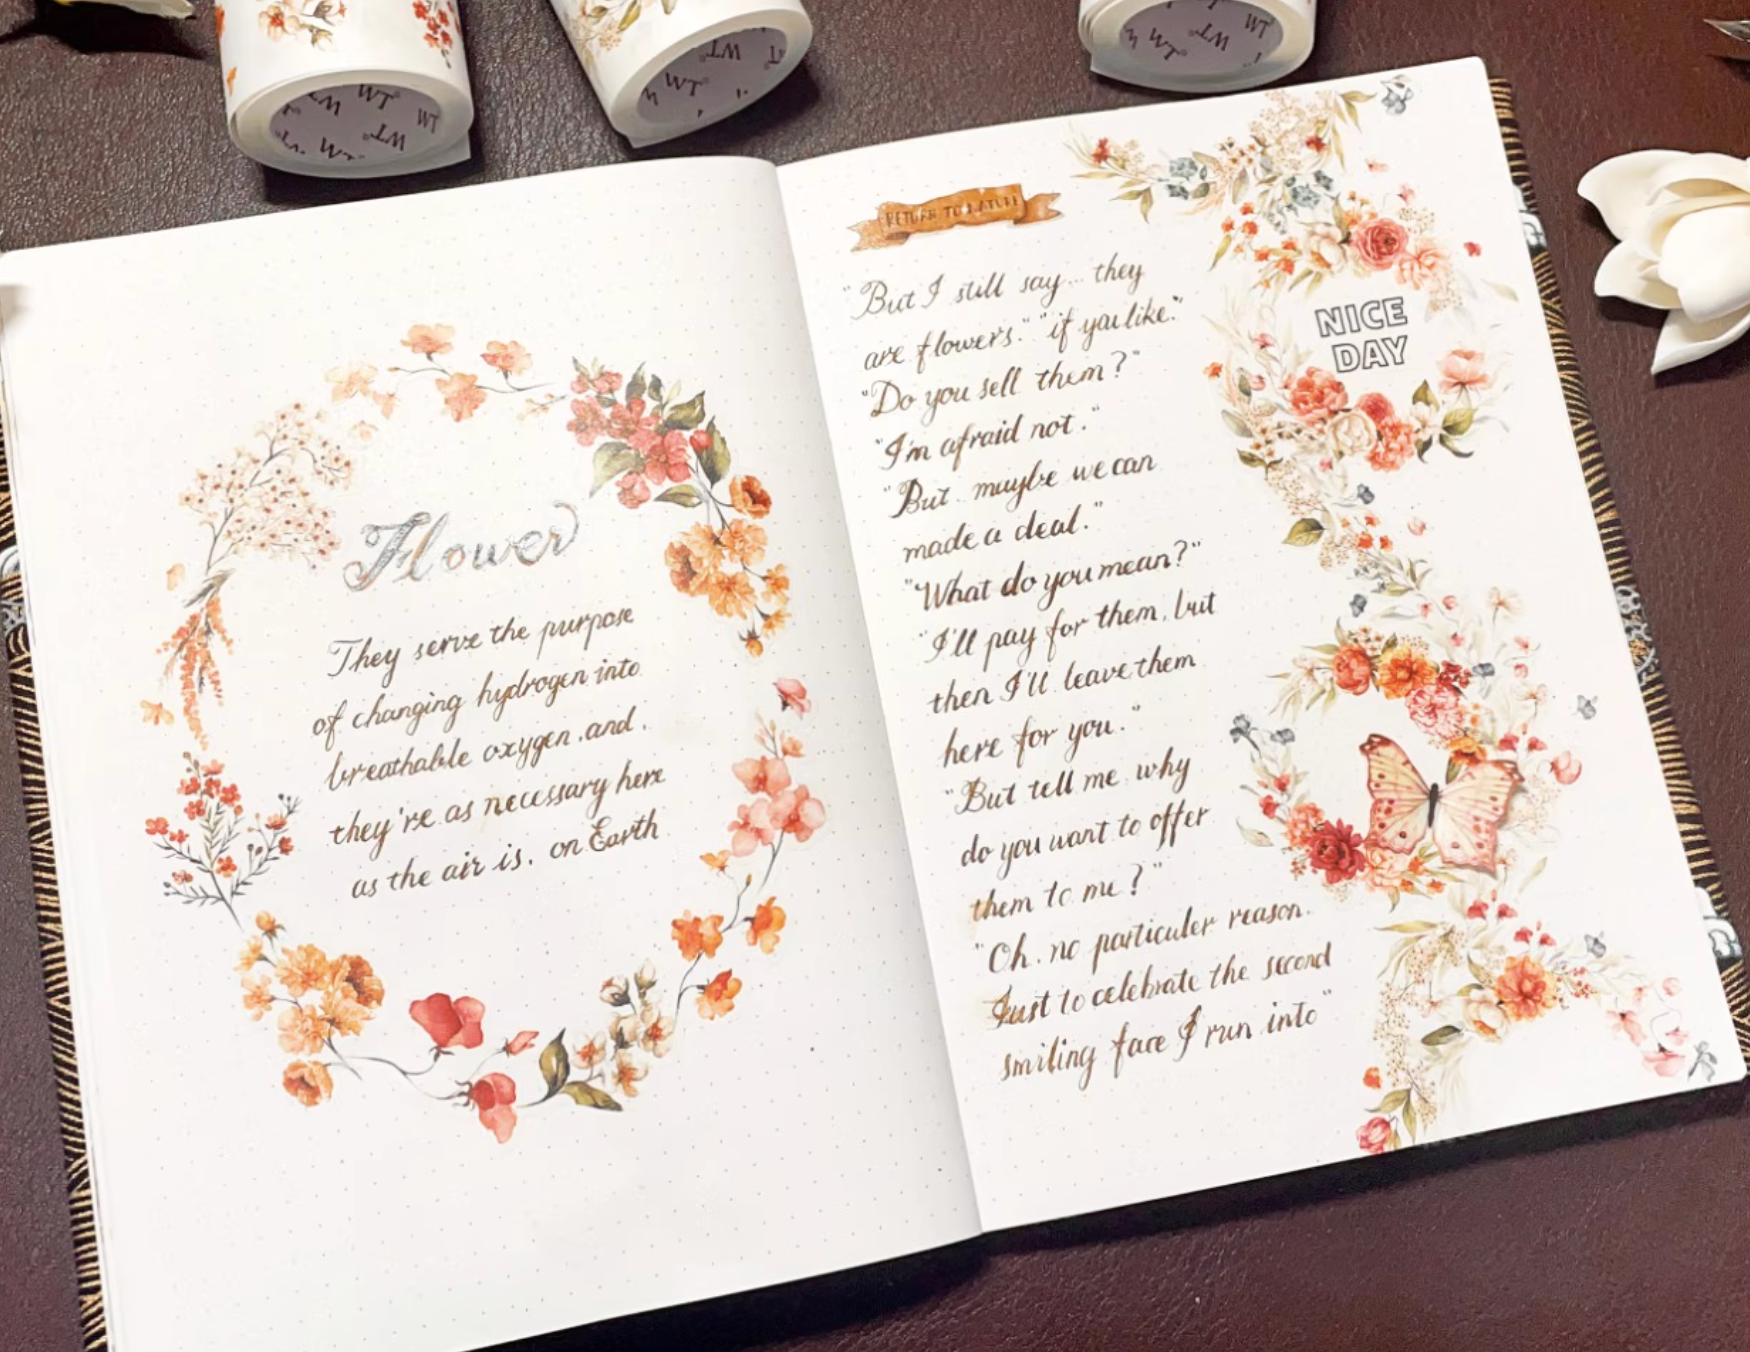 WT
WT
WT
WT
WT
WT
WT
WT
WT
Flower
They serve the purpose
of changing hydrogen into
breathable oxygen, and
they're as necessary here
as the air is, on Earth
RETURN TO NATURE
"But I still say... they
are flowers." "if you like."
"Do you sell them?"
"I'm afraid not."
"But maybe we can
made a deal."
"What do you mean?"
"I'll pay for them, but
then I'll leave them
here for you."
"But tell me why
do you want to offer
them to me?"
"Oh, no particuler reason.
Just to celebrate the second
smiling face I run into"
NICE
DAY